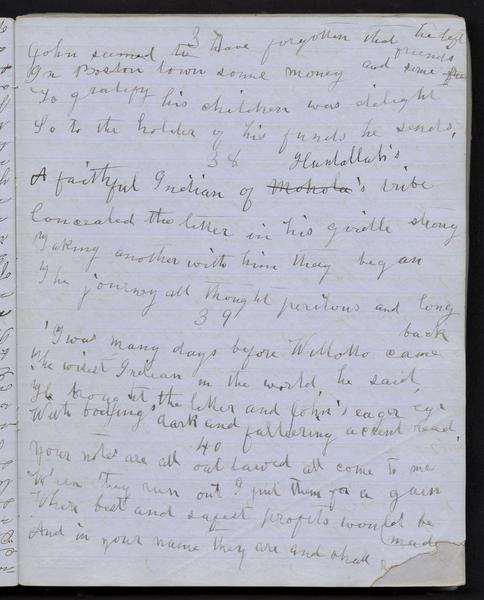 3
John seemed to have forgotten that he left
In Boston town some money and some friends
To gratify his children was delight
So to the holder of his funds he sends,
38 Huntallah's
A faithful Indian of Mohola's tribe
Concealed the letter in his girdle strong
Taking another with him they began
The journey all thought perilous and long
39
'Twas many days before Willotto came back
The widest Indian in the world, he said,
He brought the letter and John's eager eye
With bowings dark and faltering accent read,
40
Your notes are all outlawed all come to me
When they run out I put them for a gain
Where best and safest profits would be made
And in your name they are and shall